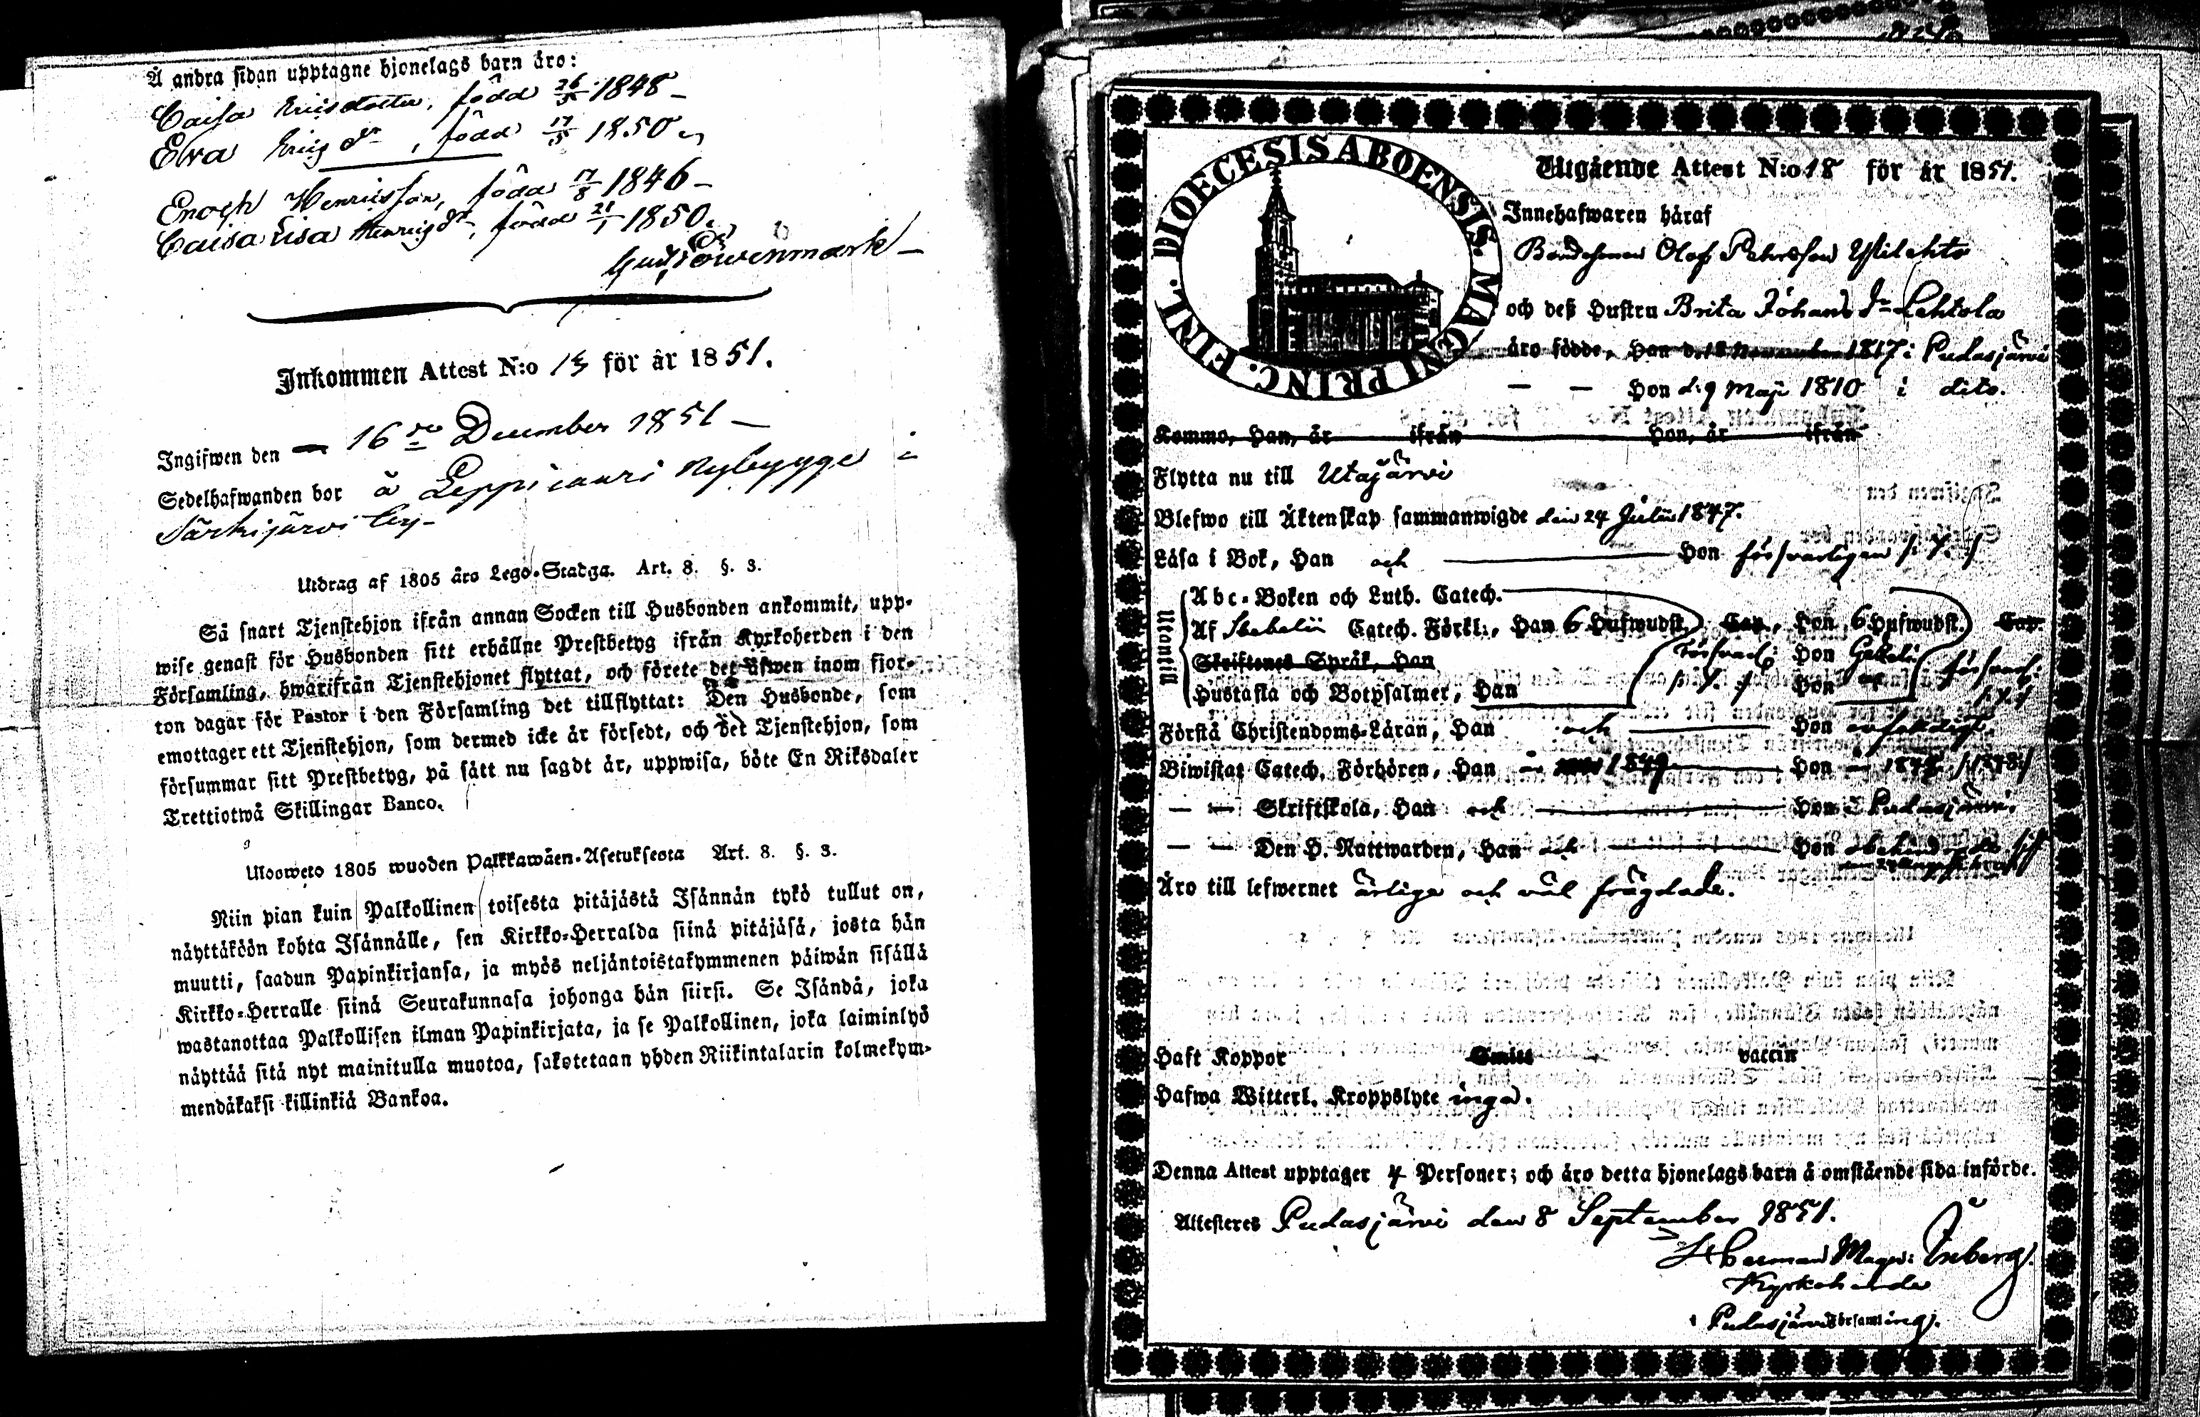 Å andra sidan upptagne hjonelags barn äro:
Caisa Ericsdotter, född 26/5 1848 –
Elva Erics dr, född 17/5 1850
Enoch Henricsson, född 17/8 1846 –
Caisa Lisa Henrics dr, född 21/1 1850.
Löwenmark –
Inkommen Attest N:o 13 för år 1851.
Ingifwen den – 16de December 1851 –
Sedelhafwanden bor å Leppicauri Nybygge i
Särkijärvi by –
Utdrag af 1805 års Lego-Stadga. Art. 8. §. 3.
Så snart Tjenstehjon ifrån annan Socken till Husbonden ankommit, upp-
wise genast för Husbonden sitt erhållne Prestbetyg ifrån Kyrkoherden i den
Församling, hwarifrån Tjenstehjonet flyttat, och förete det äfwen inom fjor-
ton dagar för Pastor i den Församling det tillflyttat: Den Husbonde, som
emottager ett Tjenstehjon, som dermed icke är försedt, och det Tjenstehjon, som
försummar sitt Prestbetyg, på sätt nu sagdt är, uppwisa, böte En Riksdaler
Trettiotwå Skillingar Banco.
Ulosweto 1805 wuoden Palkkawäen-Asetuksesta Art. 8. §. 3.
Niin pian kuin Palkollinen toisesta pitäjästä Isännän tykö tullut on,
näyttäköön kohta Isännälle, sen Kirkko-Herralda siinä pitäjäsä, josta hän
muutti, saadun Papinkirjansa, ja myös neljäntoistakymmenen päiwän sisällä
Kirkko-Herralle siinä Seurakunnasa johonga hän siirsi. Se Isändä, joka
wastanottaa Palkollisen ilman Papinkirjata, ja se Palkollinen, joka laiminlyö
näyttää sitä nyt mainitulla muotoa, sakotetaan yhden Riikintalarin kolmekym-
mendäkaksi killinkiä Bankoa.
DIOECESIS ABOENSIS. MAGNI PRINC. FINL.
Utgående Attest N:o 18 för år 1851.
Innehafwaren häraf
Bondesonen Olof Pehrsson Ylilehto
och deß Hustru Brita Johans dr Lehtola
äro födde, Han d. 18 November 1817 i Pudasjärvi
— — Hon d. 9 Maji 1810 i dito.
Kommo, Han, år ifrån Hon, år ifrån
Flytta nu till Utajärvi
Blefwo till Äktenskap sammanwigde den 24 Julii 1847.
Läsa i Bok, Han och Hon försvarligen
Utantill
Abc-Boken och Luth. Catech.
Af Svebelii Catech. Förkl., Han 6 Hufwudst. Cap., Hon 6 Hufwudst. Cap.
Skriftenes Språk, Han Hon
Hustafla och Botpsalmer, Han Hon
Förstå Christendoms-Läran, Han och Hon enfaldigt.
Biwistat Catech. Förhören, Han – 1849 Hon – 1848
— — Skriftskola, Han och Hon i Pudasjärvi.
— — Den H. Nattwarden, Han och Hon
Äro till lefwernet ärliga och väl frägdade.
Haft Koppor Smitt vaccin
Hafwa Witterl. Kroppslyte inga.
Denna Attest upptager 4 Personer; och äro detta hjonelags barn å omstående sida införde.
Attesteres Pudasjärvi den 8 September 1851.
Herman Magn: Inberg.
Kyrkoherde
i Pudasjärvi Församling.